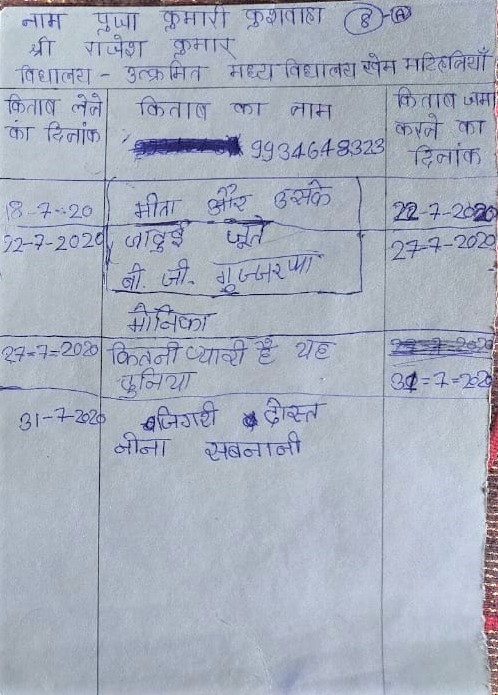 नाम पुजा कुमारी कुशवाहा 8-A
श्री राजेश कुमार
विधालय - उत्क्रमित मध्य विधालय खेम मटिहनियाँ
किताब लेने का दिनांक
किताब का नाम
9934648323
किताब जमा करने का दिनांक
18-7-20 मीता और उसके 22-7-2020
22-7-2020 जादुई जूते 27-7-2020
बी. जी. गुज्जरप्पा
मोनिका
27-7-2020 कितनी प्यारी है यह
दुनिया 31-7-2020
31-7-2020 जिगरी दोस्त
नीना सबनानी